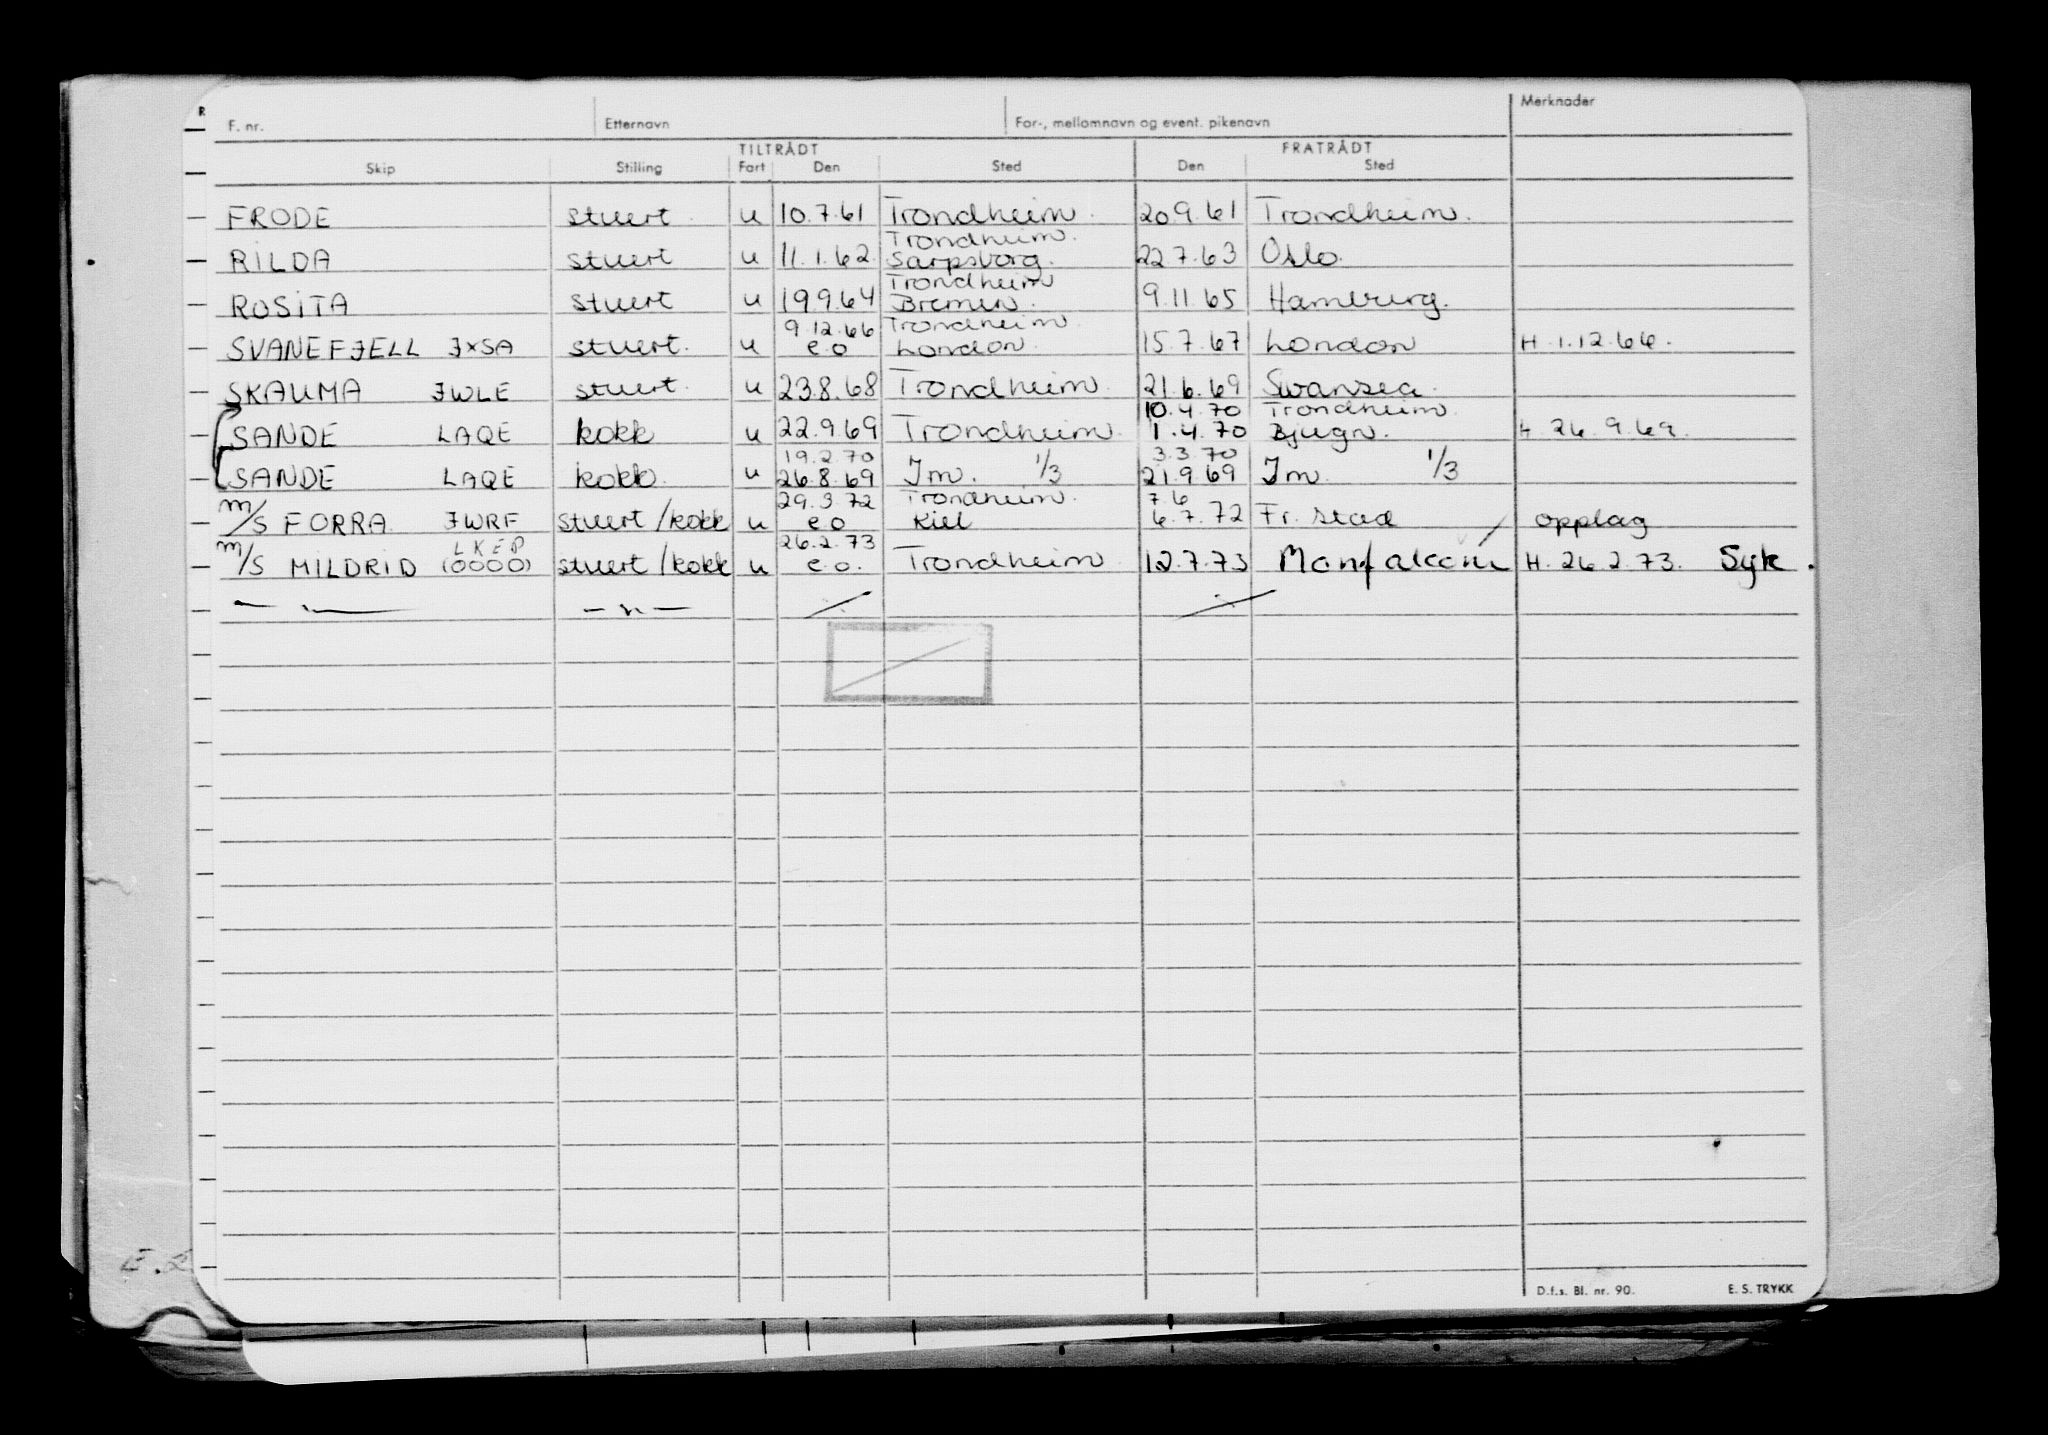 Merknader
F. nr. Etternavn For-, mellomnavn og event. pikenavn
TILTRÅDT FRATRÅDT
Skip Stilling Fart Den Sted Den Sted
FRODE stuert u 10.7.61 Trondheim. 20.9.61 Trondheim.
Trondheim.
RILDA stuert u 11.1.62 Sarpsborg. 22.7.63 Oslo.
Trondheim
ROSITA stuert u 19.9.64 Bremen. 9.11.65 Hamburg.
9.12.66 Trondheim.
SVANEFJELL JXSA stuert. u e.o London. 15.7.67 London H. 1.12.66.
SKAUMA JWLE stuert. u 23.8.68 Trondheim. 21.6.69 Swansea.
10.4.70 Trondheim.
SANDE LAQE kokk u 22.9.69 Trondheim. 1.4.70 Bjugn. H. 26.9.69.
19.2.70 3.3.70
SANDE LAQE kokk. u 26.8.69 Im. 1/3 21.9.69 Im 1/3
29.3.72 Trondheim. 7.6
m/s FORRA JWRF stuert/kokk u e o Kiel 6.7.72 Fr.stad opplag
LKEP 26.2.73
m/s MILDRID (0000) stuert/kokk u e.o. Trondheim 12.7.73 Monfalcone H. 26.2.73. Syk.
— " — — " —
E.
D.f.s. Bl. nr. 90. E. S. TRYKK